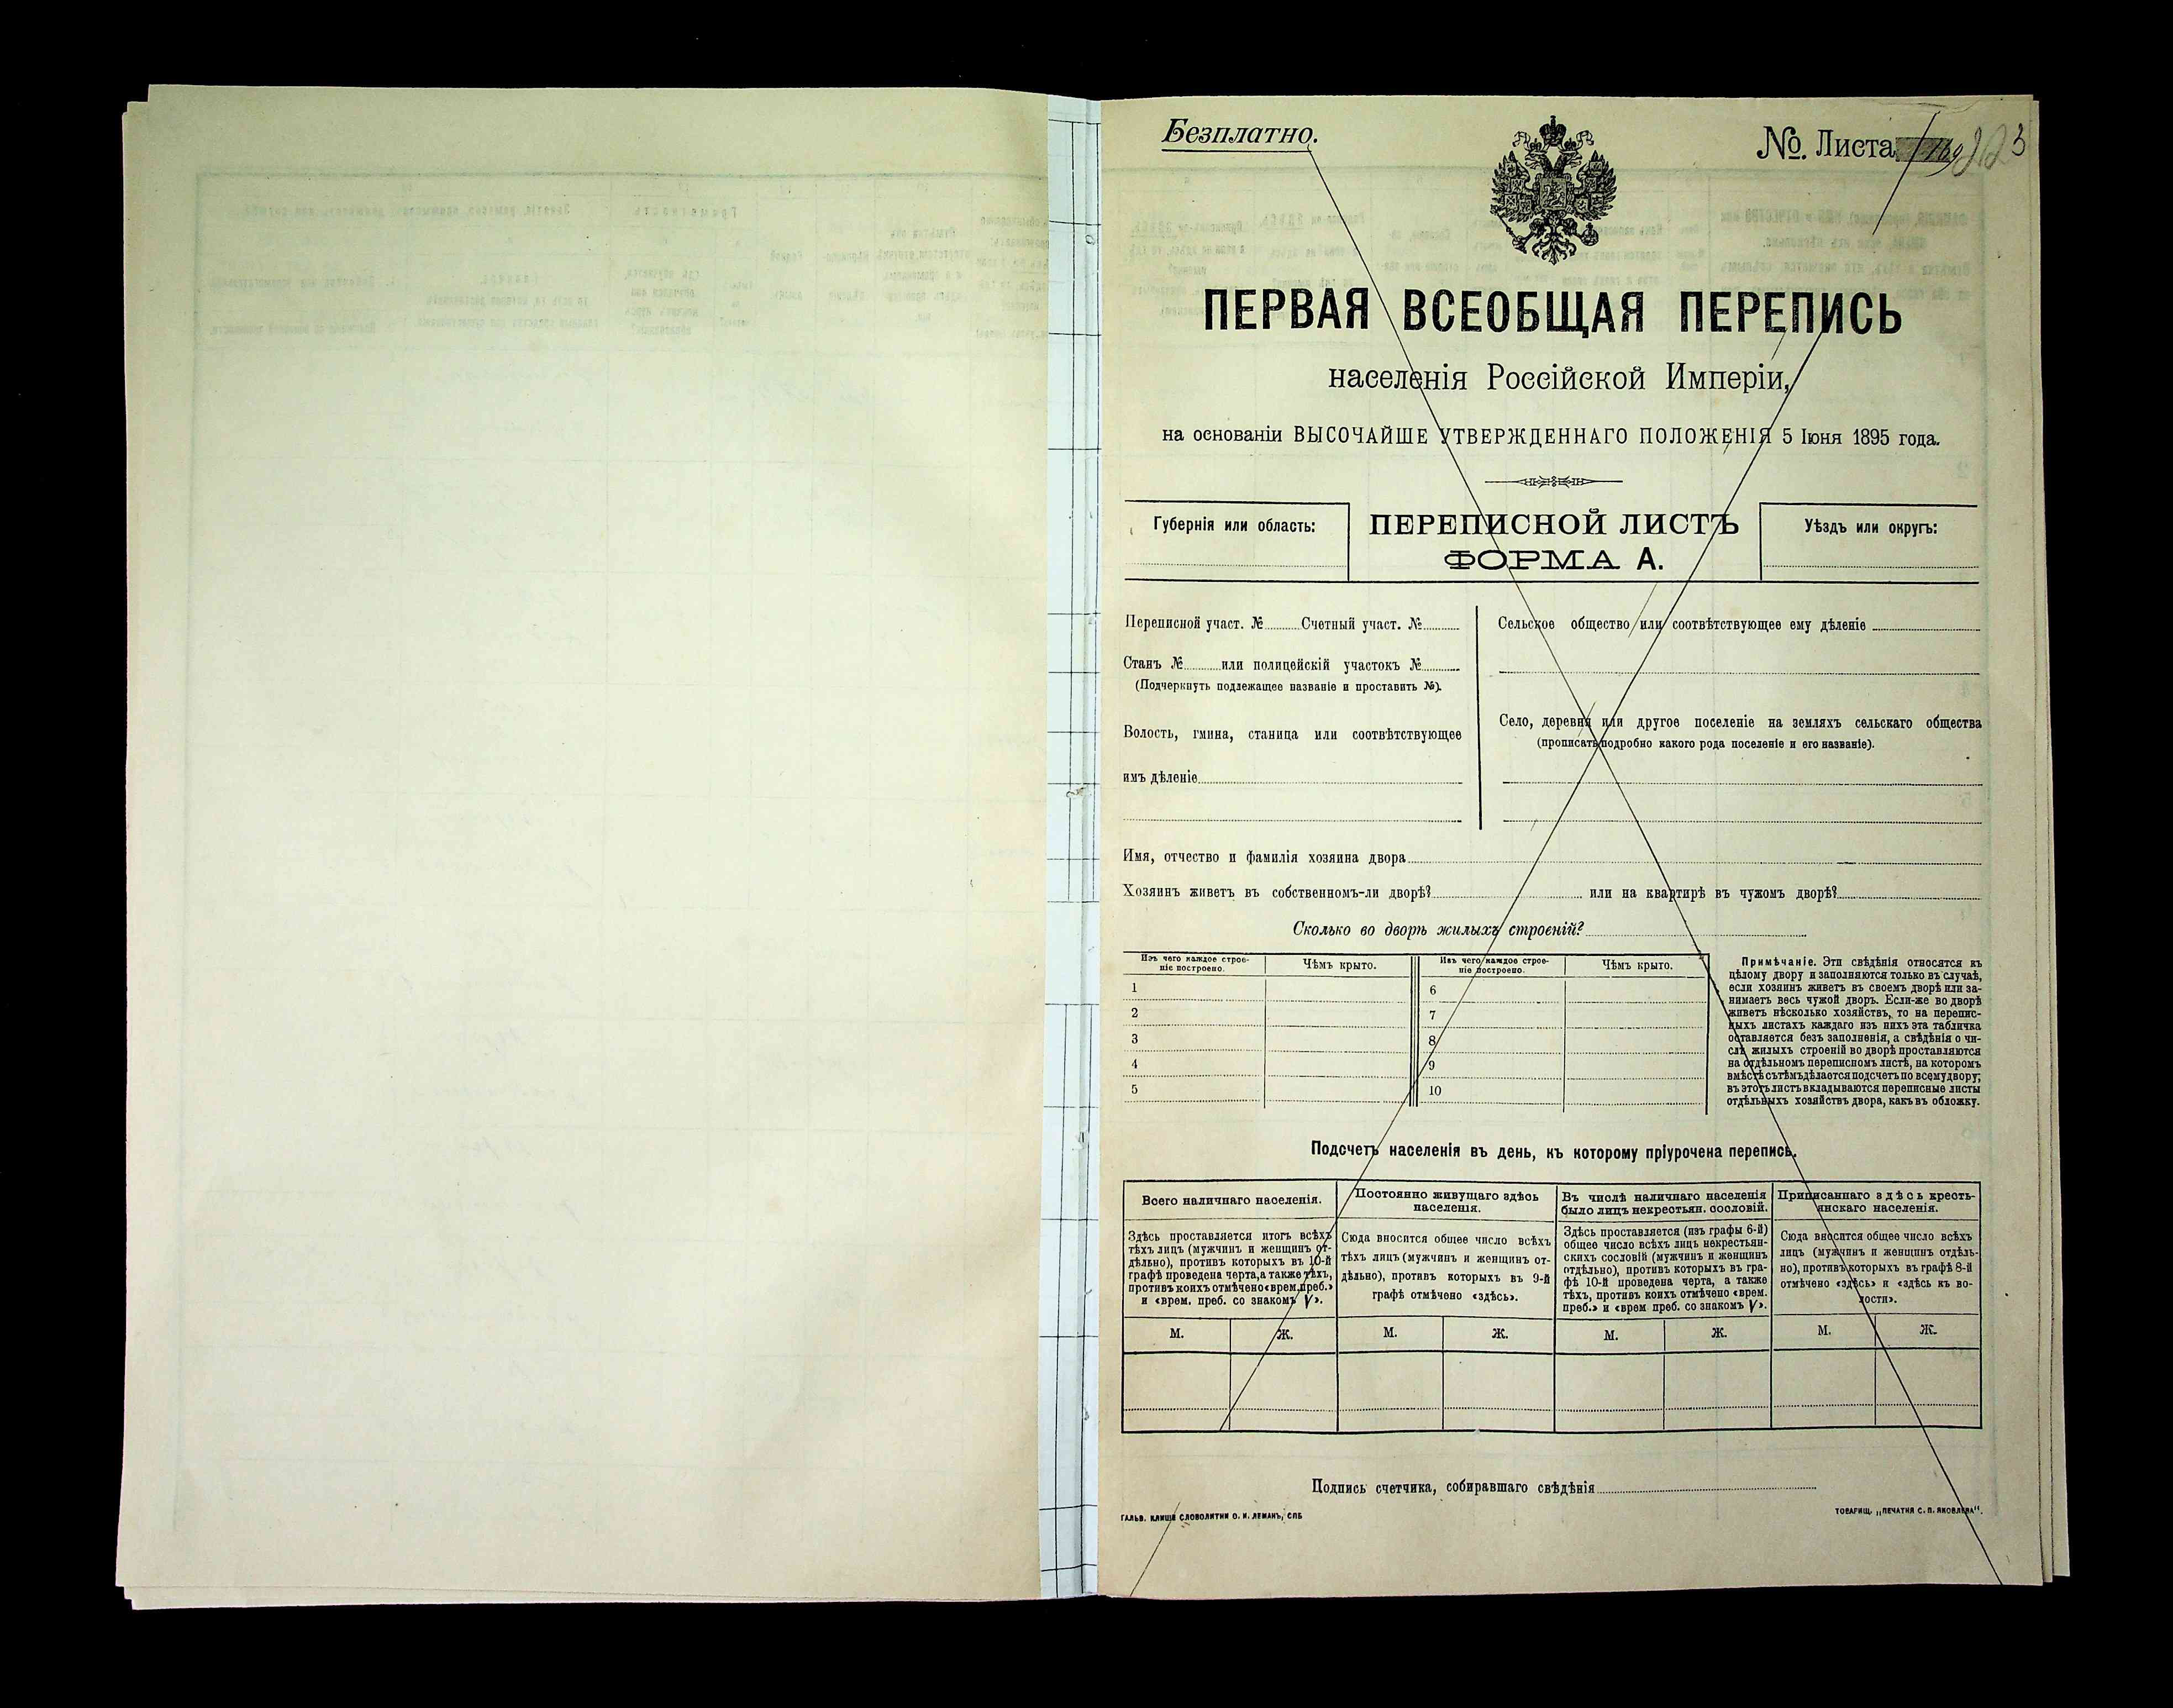 Безплатно.
№. Листа 223
ПЕРВАЯ ВСЕОБЩАЯ ПЕРЕПИСЬ
населенія Россійской Имперіи,
на основаніи ВЫСОЧАЙШЕ УТВЕРЖДЕННАГО ПОЛОЖЕНІЯ 5 Іюня 1895 года.
Губернія или область:
ПЕРЕПИСНОЙ ЛИСТЪ
ФОРМА А.
Уѣздъ или округъ:
Переписной участ. № Счетный участ. №
Станъ № или полицейскій участокъ №
(Подчеркнуть подлежащее названіе и проставить №).
Волость, гмина, станица или соотвѣтствующее
имъ дѣленіе
Сельское общество или соотвѣтствующее ему дѣленіе
Село, деревня или другое поселеніе на земляхъ сельскаго общества
(прописать подробно какого рода поселеніе и его названіе).
Имя, отчество и фамилія хозяина двора
Хозяинъ живетъ въ собственномъ-ли дворѣ? или на квартирѣ въ чужомъ дворѣ?
Сколько во дворѣ жилыхъ строеній?
Изъ чего каждое строе-
ніе построено.
Чѣмъ крыто.
Изъ чего каждое строе-
ніе построено.
Чѣмъ крыто.
1 6
2 7
3 8
4 9
5 10
Примѣчаніе. Эти свѣдѣнія относятся къ
цѣлому двору и заполняются только въ случаѣ,
если хозяинъ живетъ въ своемъ дворѣ или за-
нимаетъ весь чужой дворъ. Если-же во дворѣ
живетъ нѣсколько хозяйствъ, то на перепис-
ныхъ листахъ каждаго изъ нихъ эта табличка
оставляется безъ заполненія, а свѣдѣнія о чи-
слѣ жилыхъ строеній во дворѣ проставляются
на отдѣльномъ переписномъ листѣ, на которомъ
вмѣстѣ съ тѣмъ дѣлается подсчетъ по всему двору;
въ этотъ листъ вкладываются переписные листы
отдѣльныхъ хозяйствъ двора, какъ въ обложку.
Подсчетъ населенія въ день, къ которому пріурочена перепись.
Всего наличнаго населенія.
Здѣсь проставляется итогъ всѣхъ
тѣхъ лицъ (мужчинъ и женщинъ от-
дѣльно), противъ которыхъ въ 10-й
графѣ проведена черта, а также тѣхъ,
противъ коихъ отмѣчено «врем. преб.»
и «врем. преб. со знакомъ V».
Постоянно живущаго здѣсь
населенія.
Сюда вносится общее число всѣхъ
тѣхъ лицъ (мужчинъ и женщинъ от-
дѣльно), противъ которыхъ въ 9-й
графѣ отмѣчено «здѣсь».
Въ числѣ наличнаго населенія
было лицъ некрестьян. сословій.
Здѣсь проставляется (изъ графы 6-й)
общее число всѣхъ лицъ некрестьян-
скихъ сословій (мужчинъ и женщинъ
отдѣльно), противъ которыхъ въ гра-
фѣ 10-й проведена черта, а также
тѣхъ, противъ коихъ отмѣчено «врем.
преб.» и «врем преб. со знакомъ V».
Приписаннаго здѣсь кресть-
янскаго населенія.
Сюда вносится общее число всѣхъ
лицъ (мужчинъ и женщинъ отдѣль-
но), противъ которыхъ въ графѣ 8-й
отмѣчено «здѣсь» и «здѣсь къ во-
лости».
М. Ж. М. Ж. М. Ж. М. Ж.
Подпись счетчика, собиравшаго свѣдѣнія
ГАЛЬВ. КЛИШЕ СЛОВОЛИТНИ О. И. ЛЕМАНЪ, СПБ
ТОВАРИЩ. „ПЕЧАТНЯ С. П. ЯКОВЛЕВА".